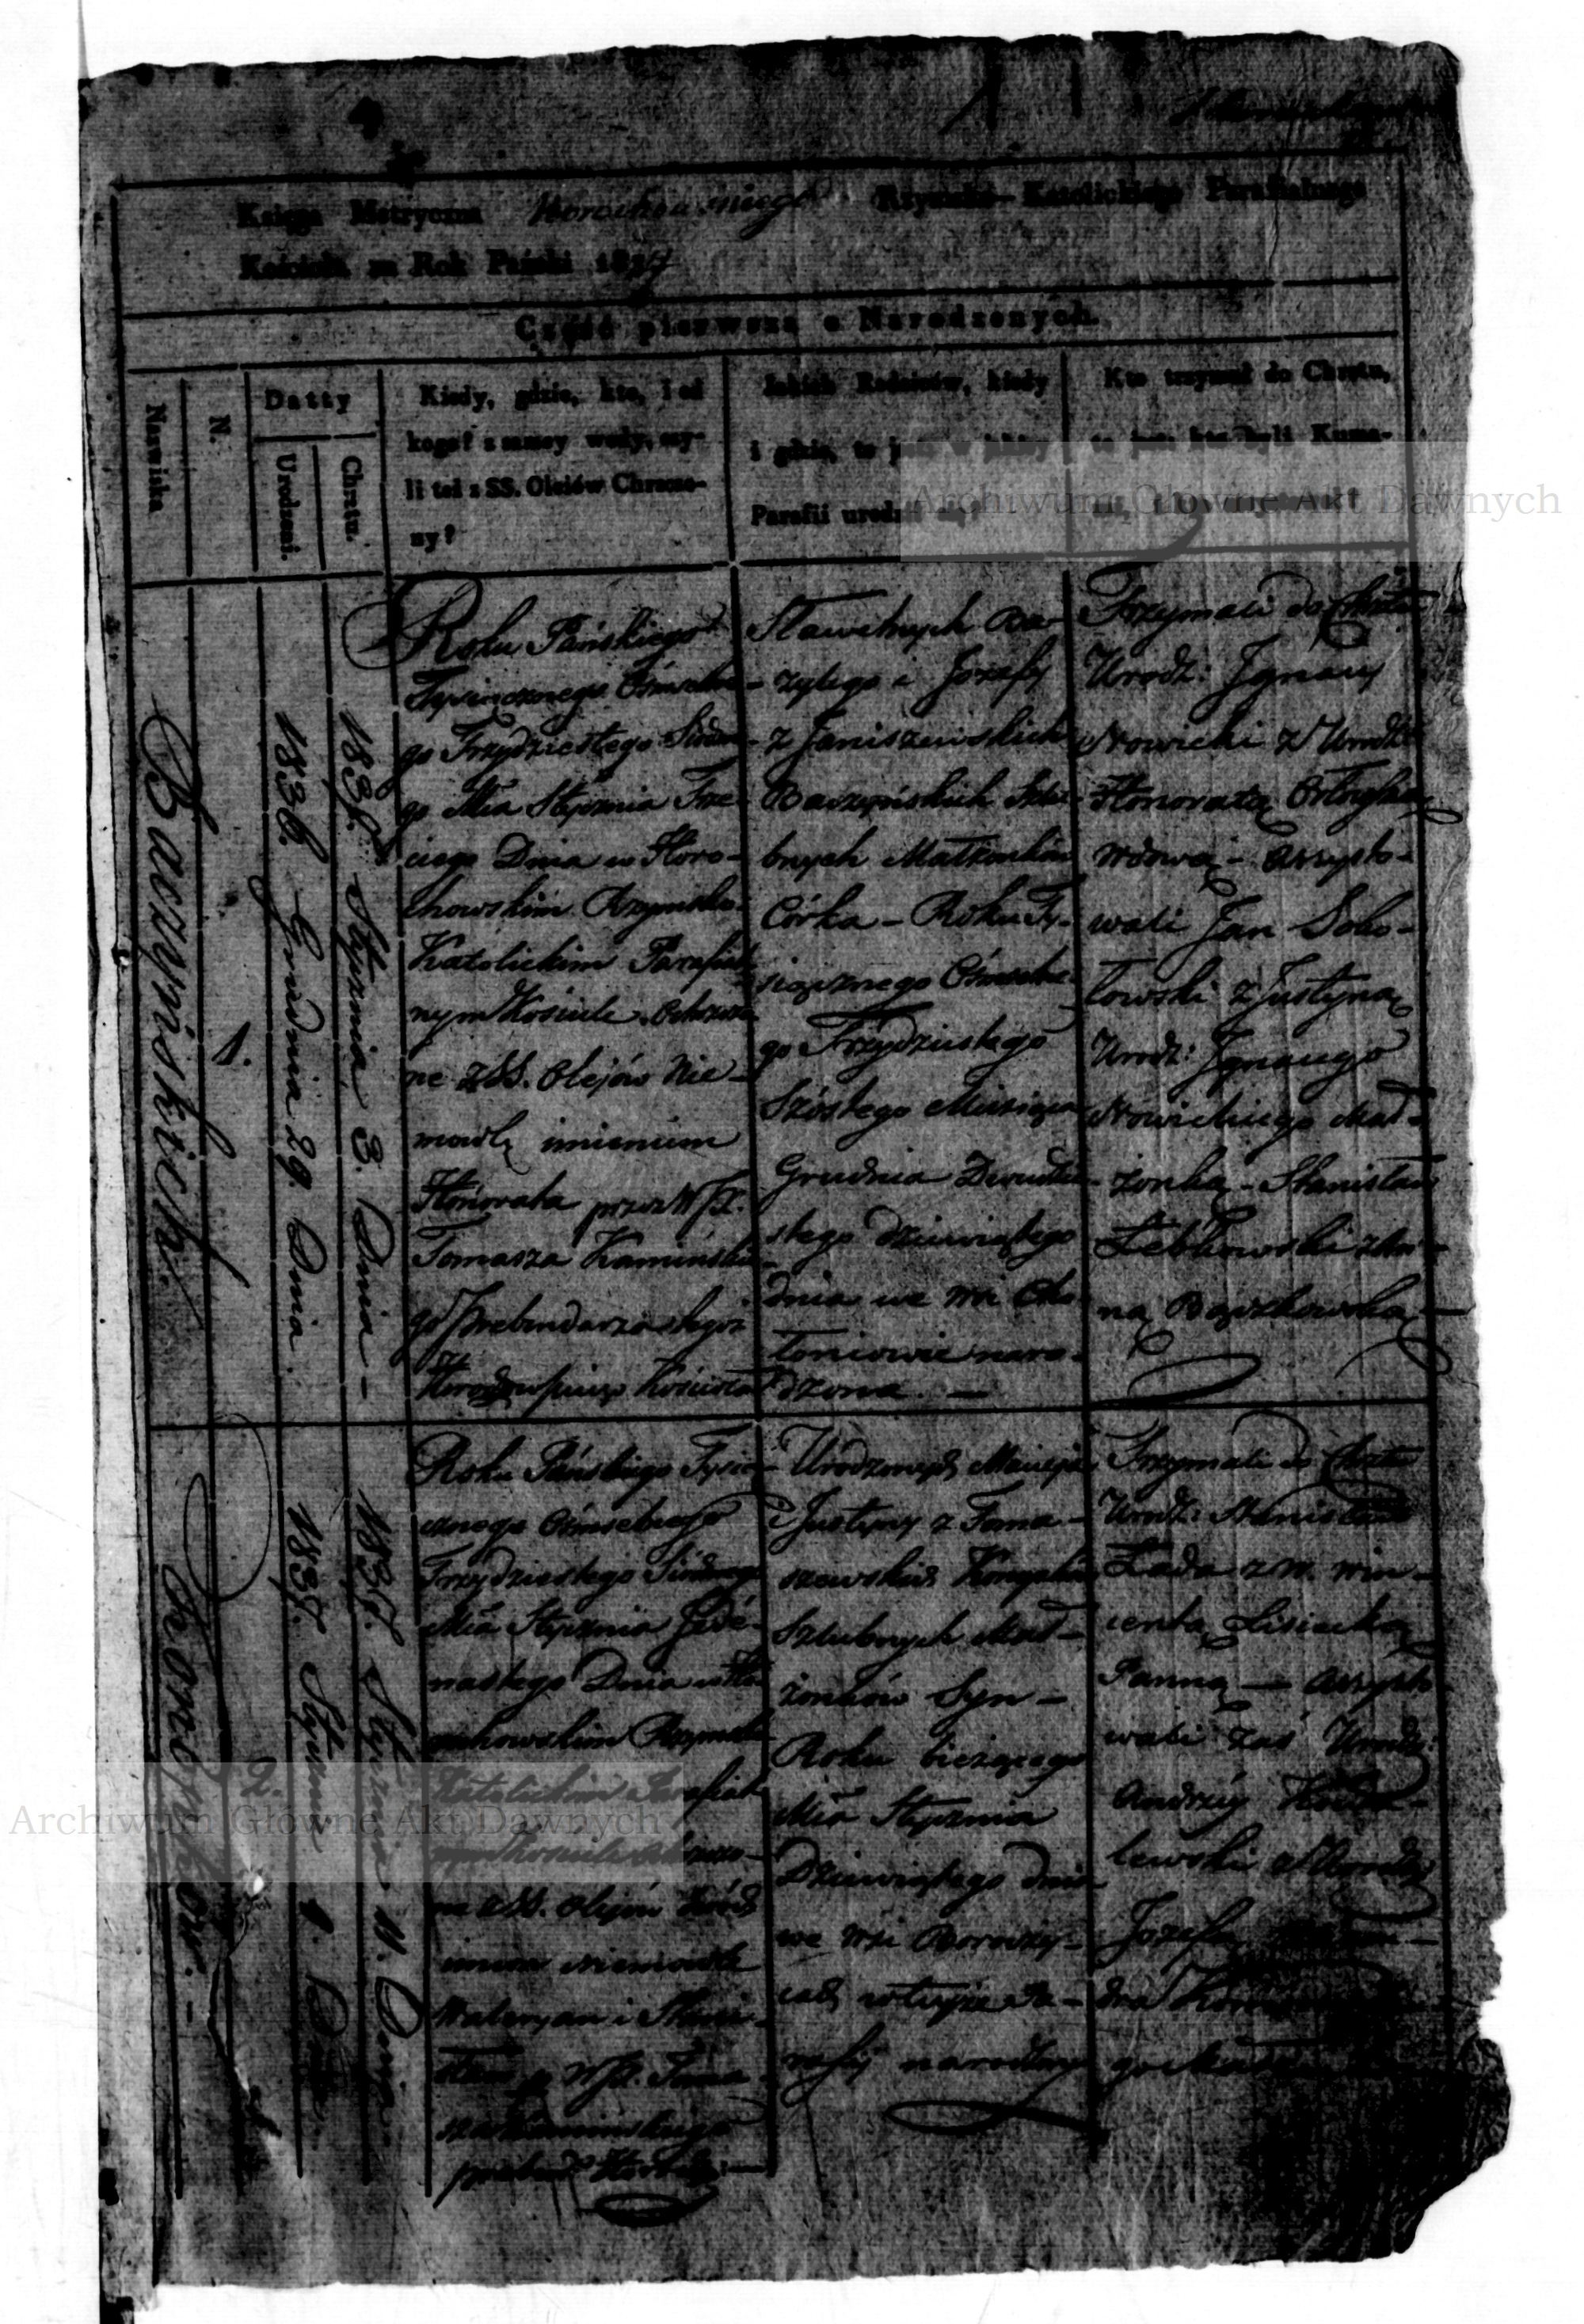 Księga Metryczna Horochowskiego Rzymsko-Katolickiego Parafialnego
Kościoła za Rok Pański 1837
Część pierwsza o Narodzonych.
Nazwiska
N.
Datty
Urodzeni.
Chrztu.
Kiedy, gdzie, kto, i od
kogo? z samey wody, czy-
li też z SS. Oleiów Chrzczo-
ny?
Jakich Rodziców, kiedy
i gdzie, to jest w jakiey
Parafii urodził się?
Kto trzymał do Chrztu,
to jest: kto byli Kumo-
Baczyńskich.
1.
1836. Grudnia 29. Dnia.
1837. Stycznia 3. Dnia –
Roku Pańskiego
Tysiącznego Ośmsetne-
go Trzydziestego Siódme-
go Mca Stycznia Trze-
ciego Dnia w Horo-
chowskim Rzymsko-
Katolickim Parafial-
nym Kościele Ochrzczo-
ne z SS. Olejów Nie-
mowlę imieniem
Honorata przez WJX.
Tomasza Kamińskie-
go Prebendarza tegoż
Kościoła
Sławetnych Ba-
zylego i Jozefy
z Janiszewskich
Baczyńskich Szlu-
bnych Małżonków
Córka – Roku Ty-
siącznego Ośmsetne-
go Trzydziestego
Szóstego Miesiąca
Grudnia Dwudzie-
stego dziewiątego
dnia we Wsi Cho-
łoniowie naro-
dzona. –
Trzymali do Chrztu
Urodz: Jgnacy
Nowicki z Urodz:
Honoratą
wdową – Assysto-
wali Jan Sobo-
lowski z Justyną
Urodz: Jgnacego
Nowickiego Mał-
żonką – Stanisław
Łebkowski z An-
ną Bączkowską –
Korżyków. –
2.
1837. Stycznia 9. Dnia
1837. Stycznia 11. Dnia
Roku Pańskiego Tysią-
cznego Ośmsetnego
Trzydziestego Siódmego
Mca Stycznia Jede-
nastego Dnia w Ho-
rochowskim Rzymsko
Katolickim Parafial-
nym Kościele Ochrzczo-
ne z SS. Olejów dwóch
imion niemowle
Waleryan i Stani-
sław p. WJX. Toma-
sza Kamińskiego
Urodzonych Macieja
i Justyny z Toma-
szewskich
Szlubnych Mał-
żonków Syn –
Roku bieżącego
Mca Stycznia
Dziewiątego dnia
we Wsi Boroczy-
cach w tejże Pa-
rafij narodzony
Trzymali do Chrztu
Urodz: Stanisław
Łada z W. Win-
centą Lisiecką
Panną – Assysto-
wali zaś Urodz:
Andrzéy
lewski z Urodz:
Jozefą